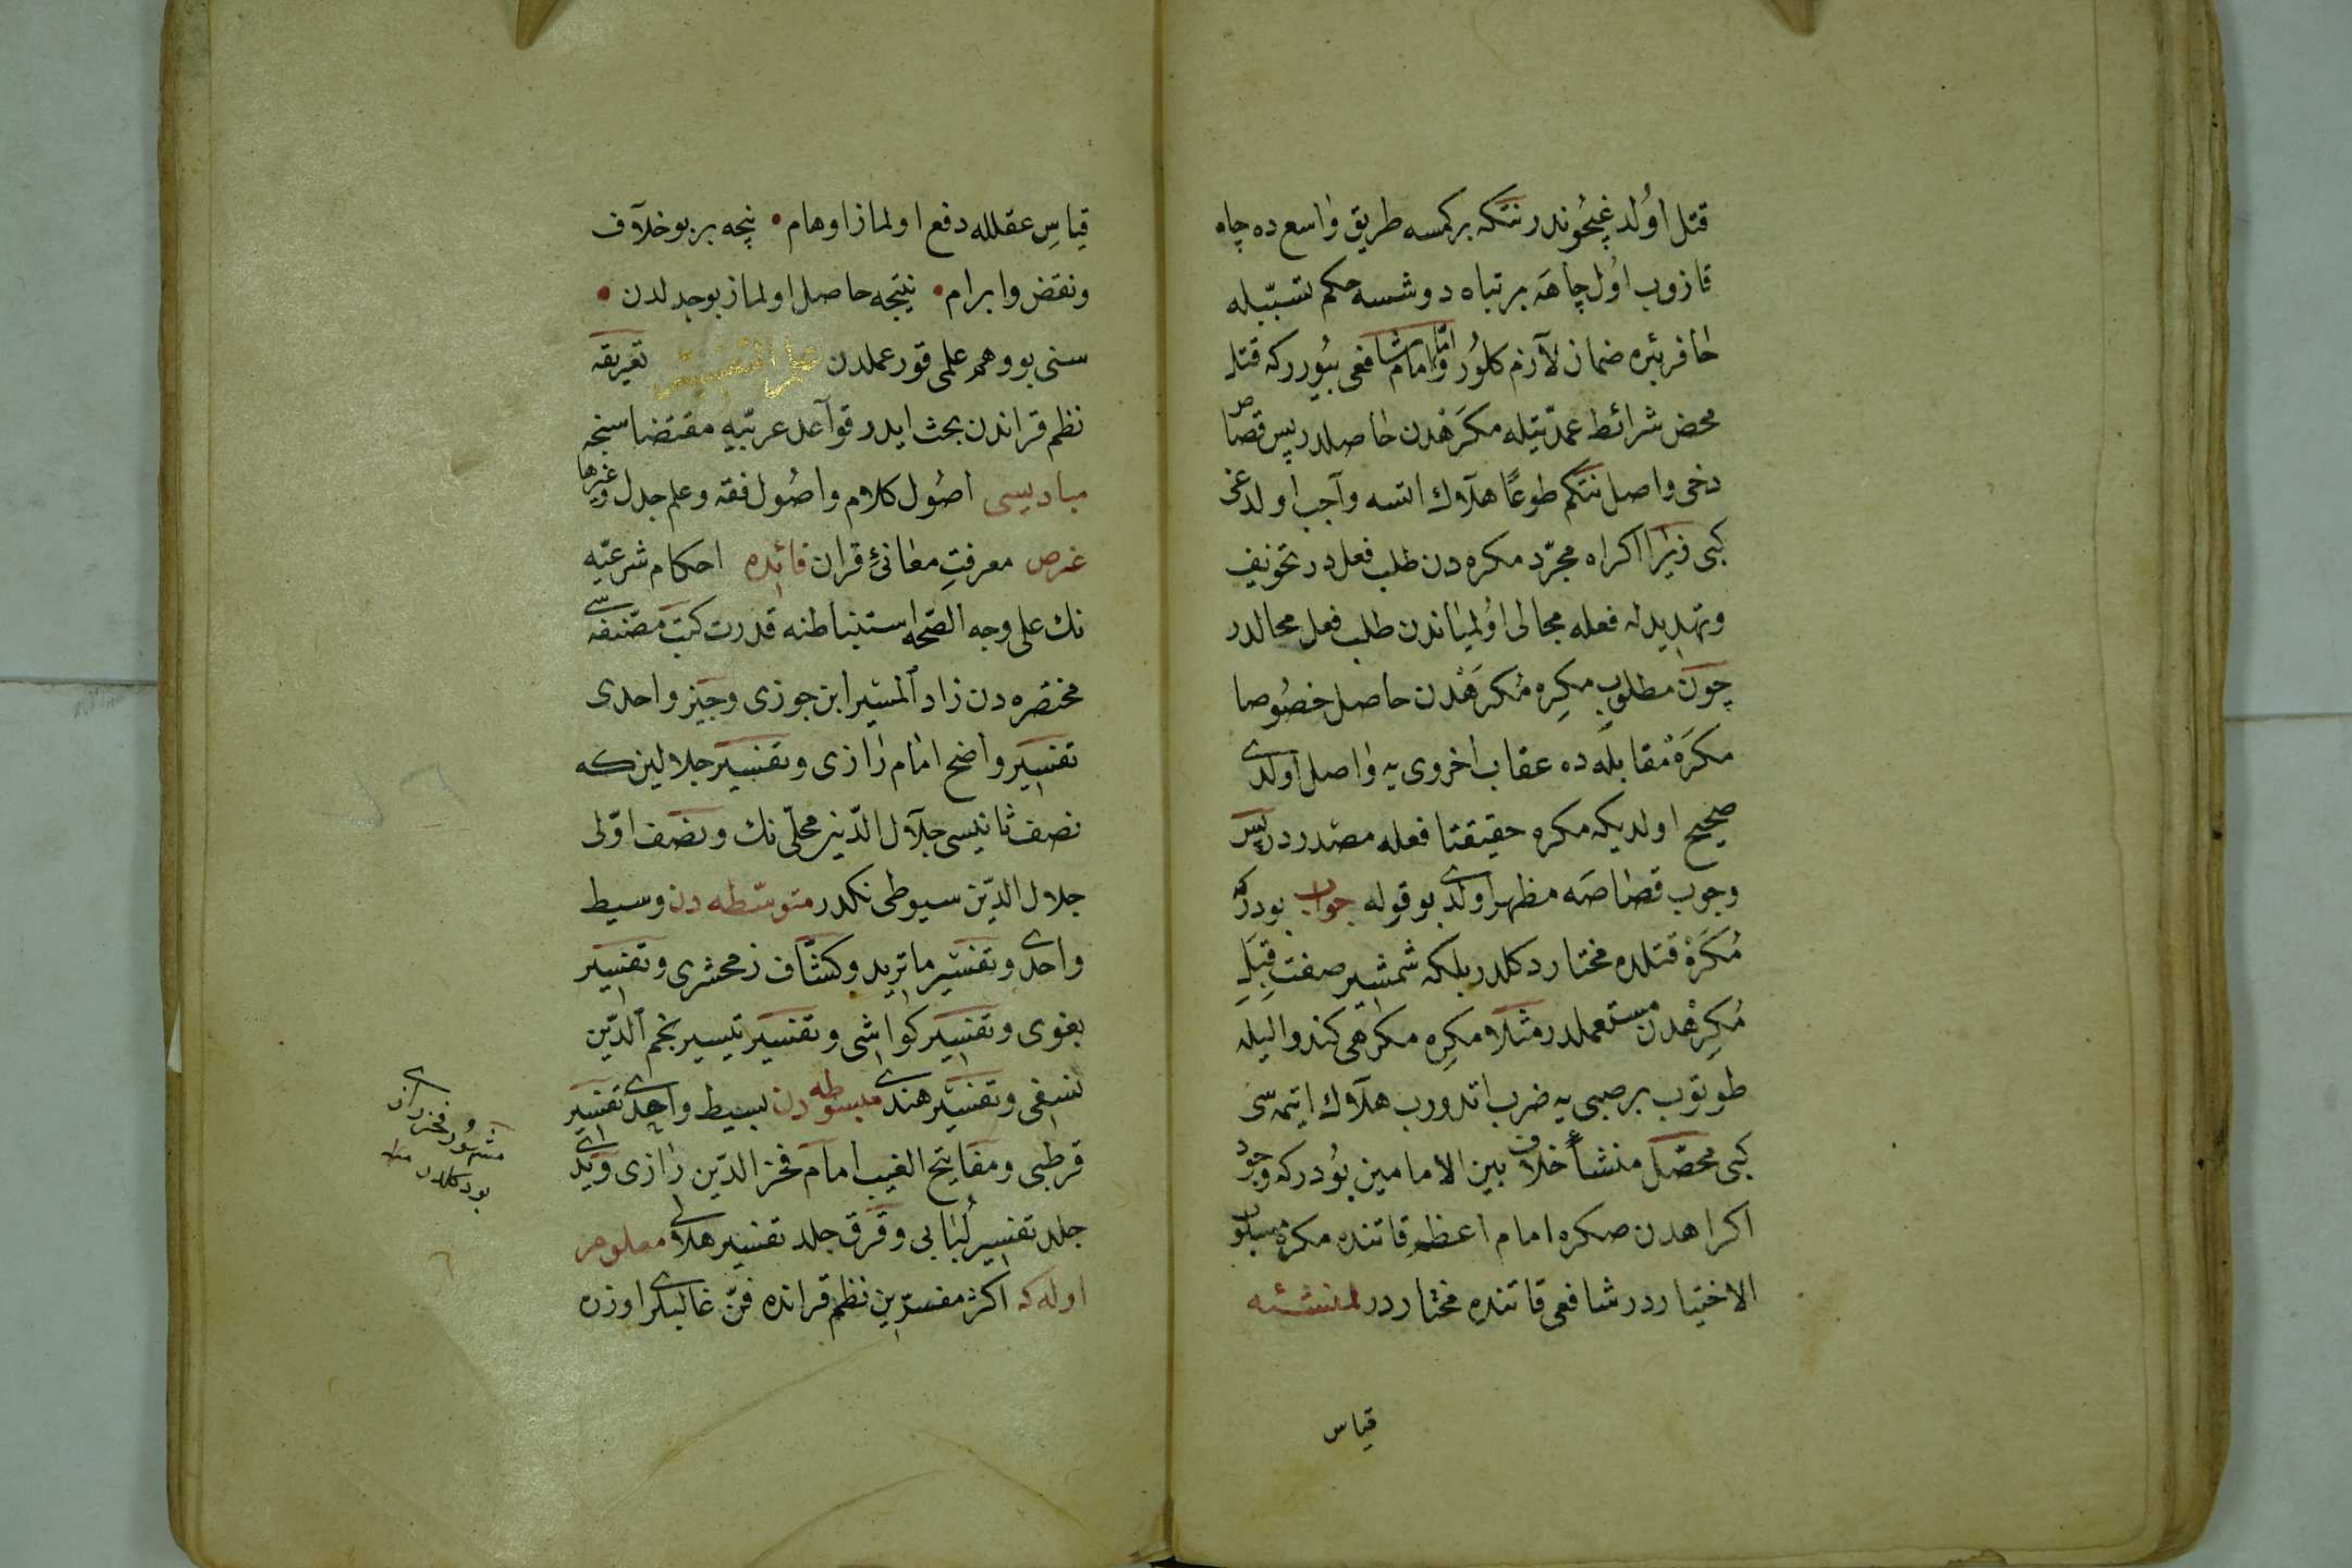 قتل اولدغیچوندر نتكه بركمسه طریق واسع ده چاه
قازوب اول چاهه بر تباه دوشسه حكم تسببله
حافر بئره ضمان لازم كلور واما امام شافعی بیوررکه قتل
محض شرائط عمدیتیله مكرهدن حاصلدر پس قصاص
دخی واصل نتكم طوعا هلاك اتسه واجب اولدغی
كبی زیرا اكراه مجرد مكره دن طلب فعلدر تخویف
وتهدیدله فعله مجالی اولمیاندن طلب فعل محالدر
چون مطلوب مكره مكرهدن حاصل خصوصا
مكره مقابله ده عقاب اخروی یه واصل اولدی
صحیح اولدیكه مكره حقیقتا فعله مصدردر پس
وجوب قصاصه مظهر اولدی بو قوله جواب بودركه
مكره قتلده مختار دكلدر بلكه شمشیر صفت قبل
مكرهدن مستعملدر مثلا مكره مكرهی كندو الیله
طوتوب بر صبی یه ضرب اتدورب هلاك ایتمه سی
كبی محصل منشأ خلاف بین الامامین بودركه وجود
اكراهدن صكره امام اعظم قاتنده مكره مسلوب
الاختیاردر شافعی قاتنده مختاردر لمنشئه
قیاس
قیاس عقلله دفع اولماز اوهام • نیجه بر بو خلاف
ونقض وابرام • نتیجه حاصل اولماز بو جدلدن •
سنی بو وهم علمی قور عملدن علم التفسیر تعریفه
نظم قراندن بحث ایدر قواعد عربیه مقتضاسنجه
مبادیسی اصول كلام واصول فقه وعلم جدل وغیرها
غرض معرفت معانئ قران فائده احكام شرعیه
نك علی وجه الصحه استنباطنه قدرت كتب مصنفه سی
مختصره دن زاد المسیر ابن جوزی وجیز واحدی
تفسیر واضح امام رازی وتفسیر جلالین كه
نصف ثانیسی جلال الدین محلی نك ونصف اولی
جلال الدین سیوطی نكدر متوسطه دن وسیط
واحدی وتفسیر ماترید وكشاف زمحشری وتفسیر
بغوی وتفسیر كواشی وتفسیر تیسیر نجم الدین
نسفی وتفسیر هندی مبسوطه دن بسیط واحدی تفسیر
قرطبی ومفاتیح الغیب امام فخر الدین رازی ویدی
جلد تفسیر لبابی وقرق جلد تفسیر هلالی معلوم
اوله كه اكثر مفسرین نظم قرانده فن غالبلری اوزره
مشهور فخر رازی
بو دكلدر